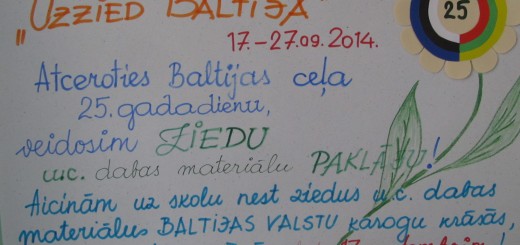 „UZZIED BALTIJA"
25
17.-27.09.2014.
Atceroties Baltijas ceļa
25.gadadienu,
veidosim ZIEDU
u.c. dabas materiālu PAKLĀJU!
Aicinām uz skolu nest ziedus u.c. dabas
materiālus BALTIJAS VALSTU karogu krāsās,